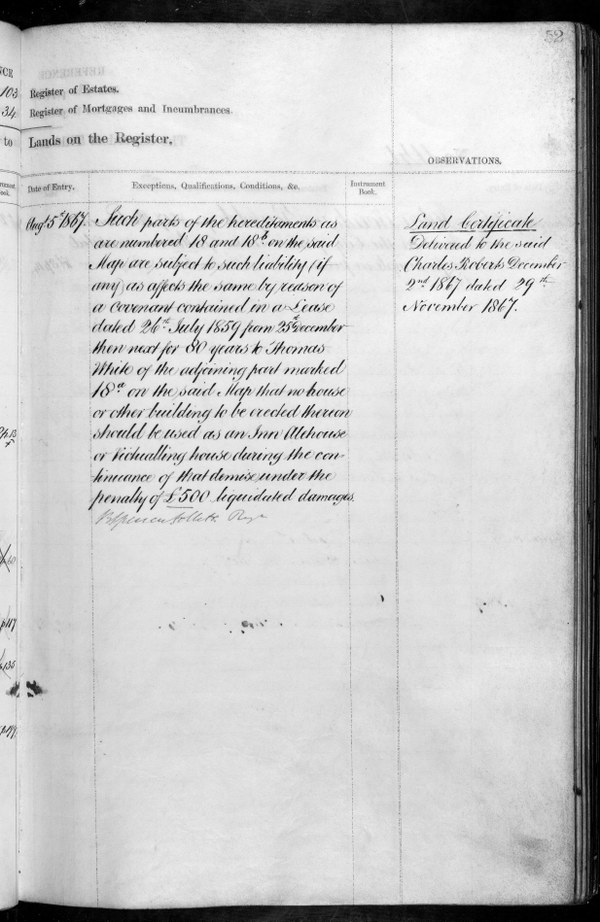 52
NCE
103
34
to
Register of Estates.
Register of Mortgages and Incumbrances.
Lands on the Register,
OBSERVATIONS.
Date of Entry.
Exceptions, Qualifications, Conditions, &c.
Instrument
Book.
Augt 5th 1867.
Such parts of the hereditaments as
are numbered 18 and 18b on the said
Map are subject to such liability (if
any) as affects the same by reason of
a Covenant contained in a Lease
dated 26th July 1859 from 25th December
then next for 80 years to Thomas
White of the adjoining part marked
18a on the said Map that no house
or other building to be erected thereon
should be used as an Inn Alehouse
or Victualling house during the con-
tinuance of that demise under the
penalty of £500 liquidated damages.
Land Certificate
Delivered to the said
Charles Roberts December
2nd 1867 dated 29th
November 1867.